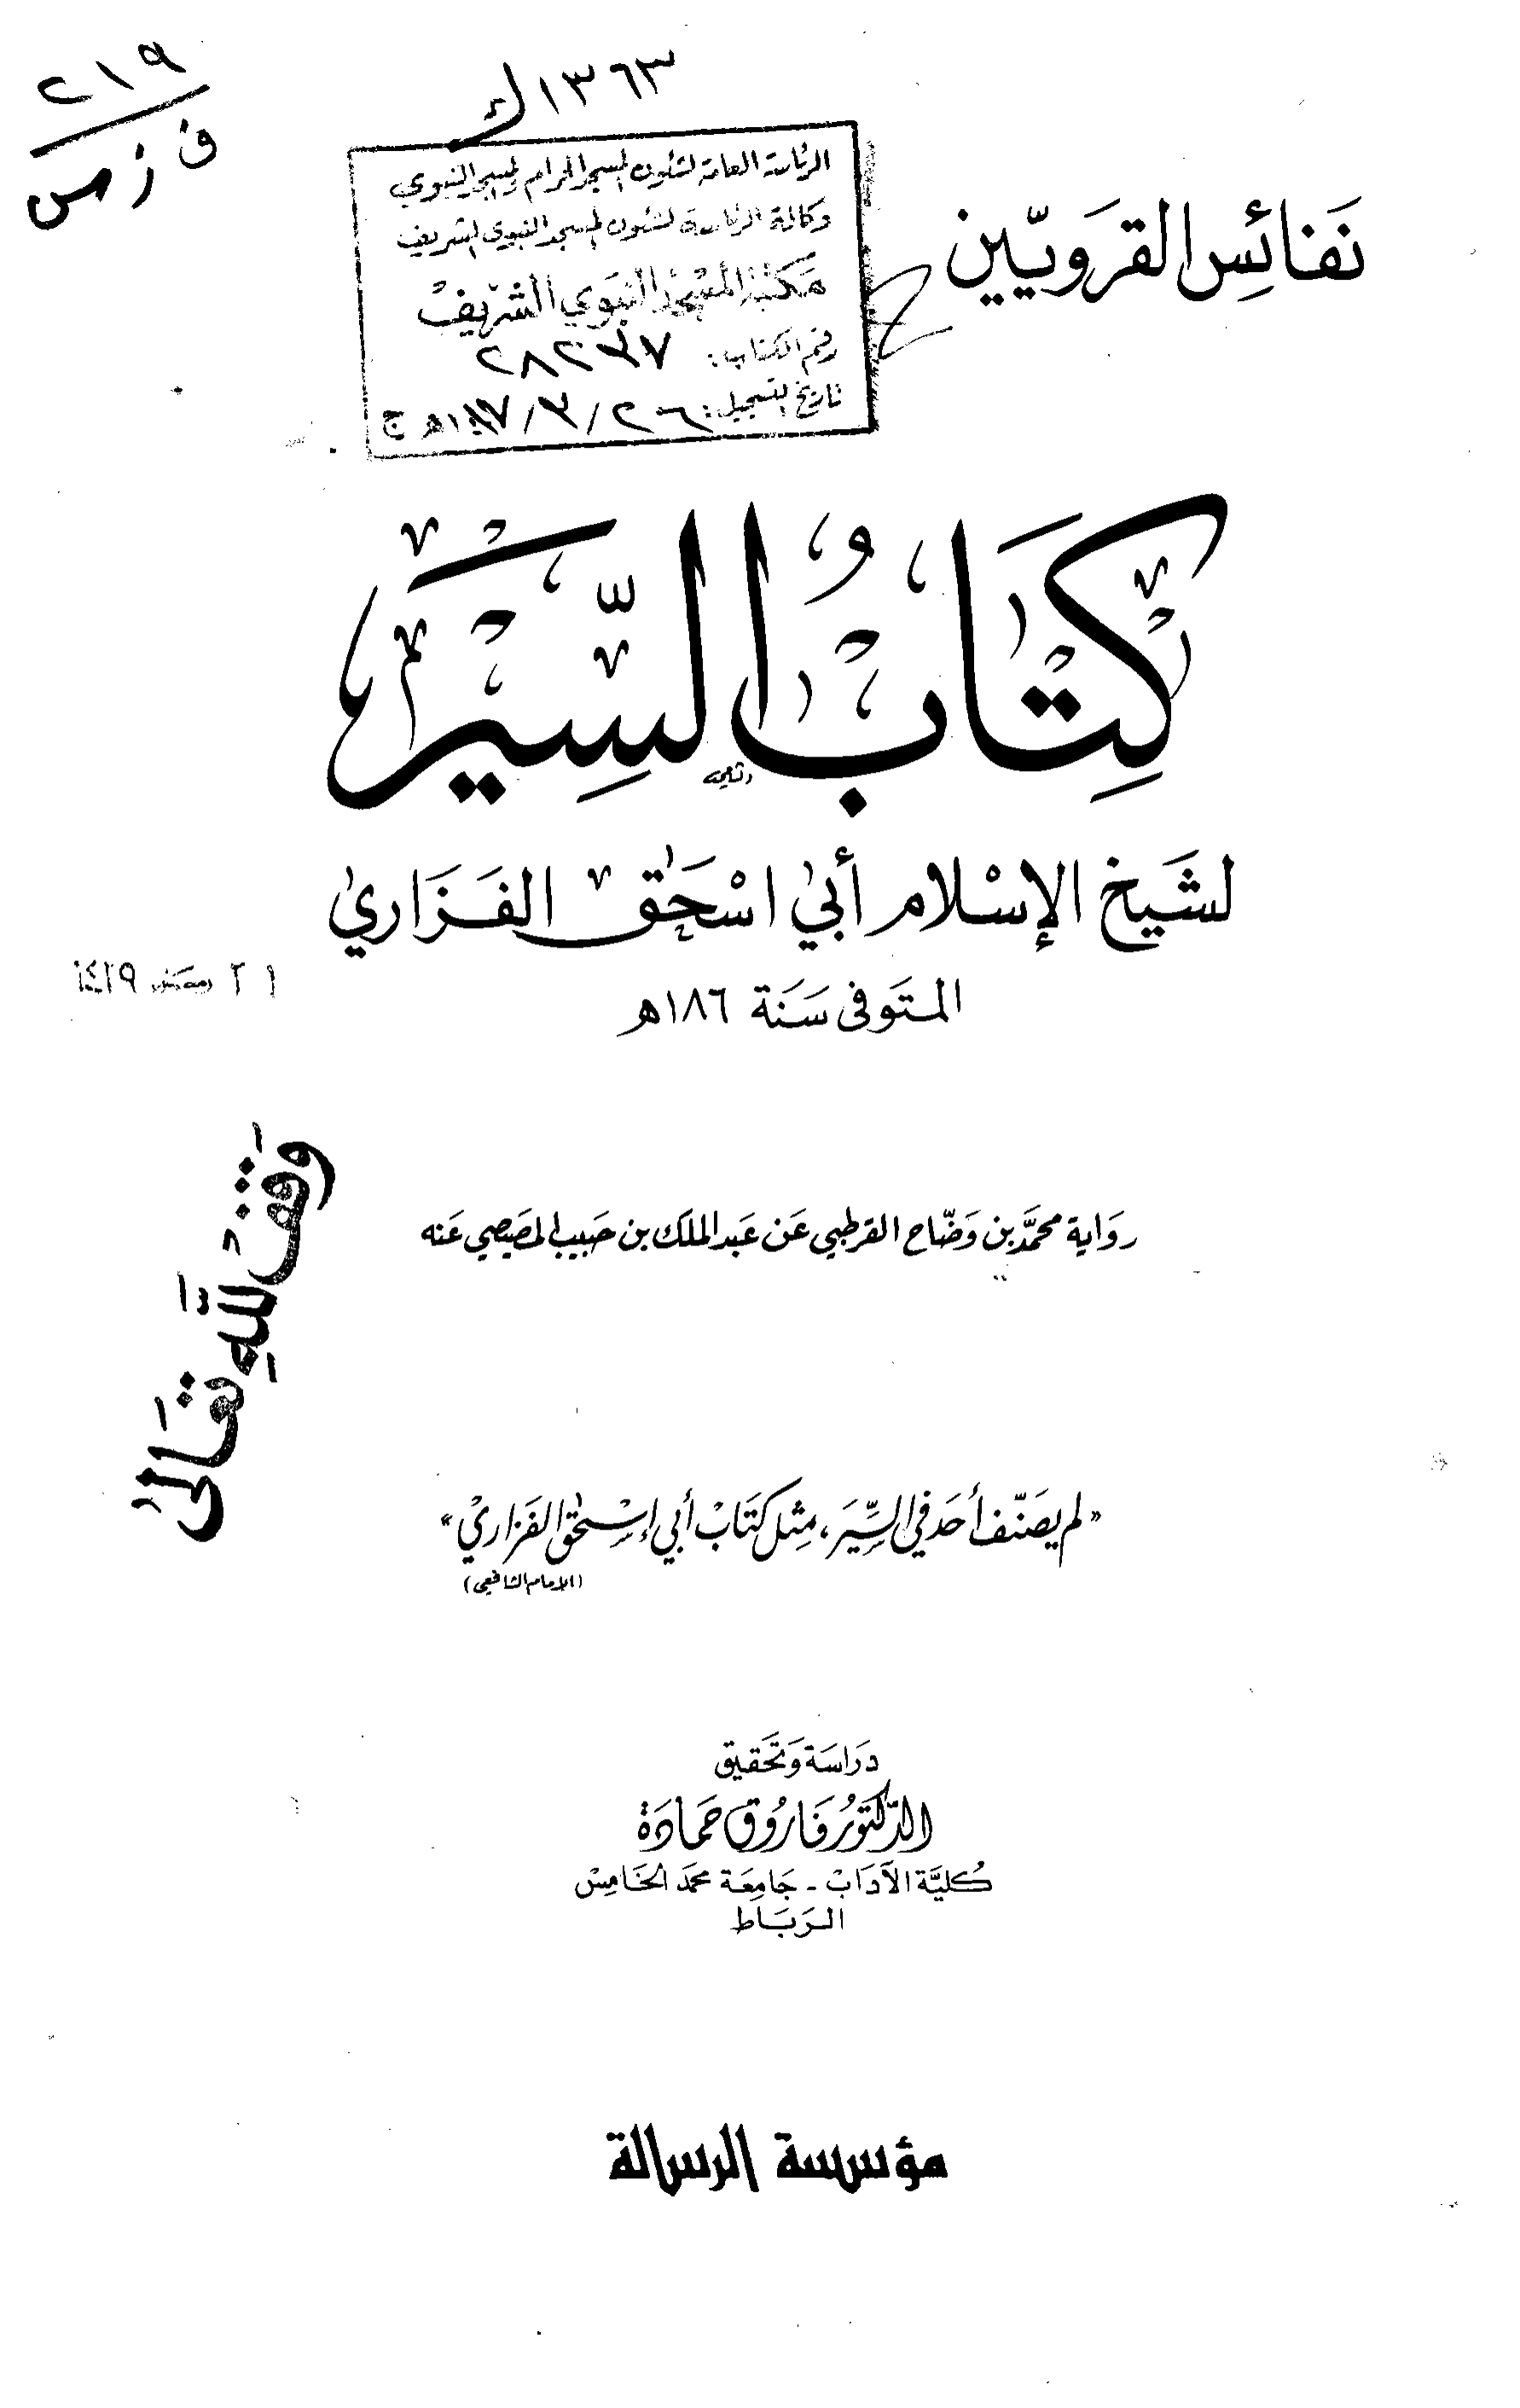 ٢١٩
ف ز س
١٣٦٣ ك
نَفَائِس القَرَويّين
الرئاسة العامة لشئون المسجد الحرام والمسجد النبوي
وكالة الرئاسة لشئون المسجد النبوي الشريف
مكتبة المسجد النبوي الشريف
رقم الكتاب:
تاريخ التسجيل:
كِتَابُ السِّيَر
لشَيخ الإسْلام أبي اسْحَٰق الفَزَاري
المتَوفى سَنَة ١٨٦ه
١٤١٩
وَقْف للَّهِ تعَالى
رِوَاية محمَّد بن وَضّاح القرطبي عَن عَبد الملك بن حَبيب المصيصي عَنه
«لم يصَنّف أحَد في السِّيَر، مِثل كتَابْ أبي إسْحٰق الفَزاريْ»
(الإمام الشافعي)
دَراسَة وَتحَقيق
الدّكتوُر فَاروُق حَمادَة
كُليَّة الآدَابْ - جَامِعَة محمَد الخَامِسْ
الـرَبَـاط
مؤسسة الرسالة